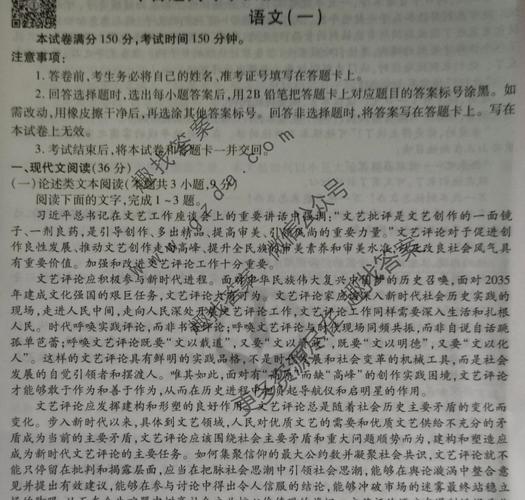 语文(一)
本试卷满分150分,考试时间150分钟。
注意事项:
1.答卷前,考生务必将自己的姓名、准考证号填写在答题卡上。
2.回答选择题时,选出每小题答案后,用2B铅笔把答题卡上对应题目的答案标号涂黑。如
需改动,用橡皮擦干净后,再选涂其他答案标号。回答非选择题时,将答案写在答题卡上。写在
本试卷上无效。
3.考试结束后,将本试卷和答题卡一并交回。
一、现代文阅读(36分)
(一)论述类文本阅读(本题共3小题,9分)
阅读下面的文字,完成1~3题。
习近平总书记在文艺工作座谈会上的重要讲话中强调:“文艺批评是文艺创作的一面镜
子、一剂良药,是引导创作、多出精品、提高审美、引领风尚的重要力量。”文艺评论对于促进创
作良性发展、推动文艺创作走向高峰、提升全民族的审美素养和审美水平以及改良社会风气具
有重要价值。加强和改进文艺评论工作十分重要。
文艺评论应积极参与新时代进程。面对中华民族伟大复兴的历史召唤,面对2035
年建成文化强国的艰巨任务,文艺评论大有可为。文艺评论家应深入新时代社会历史实践的
现场,走进人民中间,走向人民深处开展文艺评论工作,文艺评论工作同样需要深入生活和扎根
人民。时代呼唤实践评论,而非书斋评论;呼唤文艺评论与时代现场同频共振,而非自说自话踽
踽独行孤芳;呼唤文艺评论既要“文以载道”,又要“文以化人”,既要“文以明德”,又要“文以化
人”。这样的文艺评论具有鲜明的实践品格,不是时代发展和社会变革的机械工具,而是社会
发展的自觉引领者和摆渡人。唯其如此,面对有“高原”而缺“高峰”的创作实践困境,文艺评论
才能够敢于作为和善于作为,从而在历史进程中发挥起导航仪和启明星的作用。
文艺评论应发挥建构和形塑的良好作用。文艺评论总是随着社会历史主要矛盾的变化而
变化。步入新时代以来,具体到文艺领域,人民对优质文艺的需要和优质文艺供给不充分的矛
盾成为当前的主要矛盾,文艺评论应该围绕社会主要矛盾和重大问题顺势而为,建构和塑造应
成为新时代文艺评论的主要任务。如何集聚信仰的最大公约数并凝聚社会共识,文艺评论就不
能只停留在批判和揭露层面,应当在把脉社会思潮中引领社会思潮,能够在舆论漩涡中整合意
见并提出有效建议,能够在参与讨论中得出令人信服的结论,能够冲破市场的迷雾最终站稳立